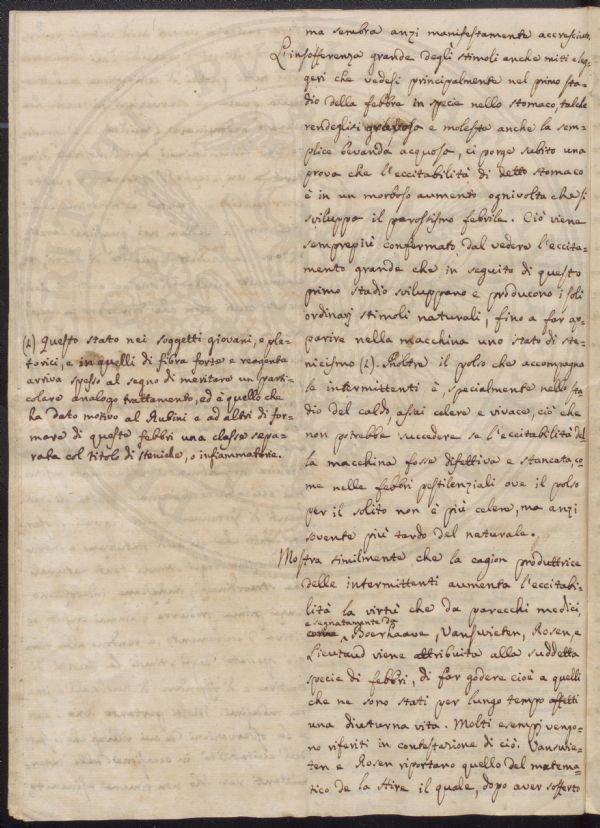 ma sembra anzi manifestamente accresciuta.
L'insofferenza grande degli stimoli anche miti e leg-
geri che vedesi principalmente nel primo sta-
dio della febbre in specie nello stomaco, talche
rendeglisi gravosa e molesta anche la sem-
plice bevanda acquosa, ci porge subito una
prova che l'eccitabilità di detto stomaco
è in un morboso aumento ognivolta che si
sviluppa il parossismo febrile. Ciò viene
semprepiù confermato dal vedere l'eccita-
mento grande che in seguito di questo
primo stadio sviluppano e producono i soli
ordinarj stimoli naturali, fino a far ap-
parire nella macchina uno stato di ste-
nicismo (1). Inoltre il polso che accompagna
le intermittenti è, specialmente nello sta-
dio del caldo, assai celere e vivace, ciò che
non potrebbe succedere se l'eccitabilità del-
la macchina fosse difettiva e stancata, co-
me nelle febbri pestilenziali ove il polso
per il solito non è più celere, ma anzi
sovente più tardo del naturale.
Mostra similmente che la cagion produttrice
delle intermittenti aumenta l'eccitabi-
lità la virtù che da parecchi medici,
e segnatamente da
come Boerhaave, Vanswieten, Rosen, e
Lieutaud viene attribuita alla suddetta
specie di febbri, di far godere cioè a quelli
che ne sono stati per lungo tempo affetti
una diuturna vita. Molti esempj vengo-
no riferiti in contestazione di ciò. Vanswie-
ten e Rosen riportano quello del matema-
tico de la Hire il quale, dopo aver sofferto
(1) Questo stato nei soggetti giovani, e ple-
torici, e in quelli di fibra forte e reagente
arriva spesso al segno di meritare un parti-
colare analogo trattamento, ed è quello che
ha dato motivo al Rubini e ad altri di for-
mare di queste febbri una classe sepa-
rata col titolo di steniche, o infiammatorie.